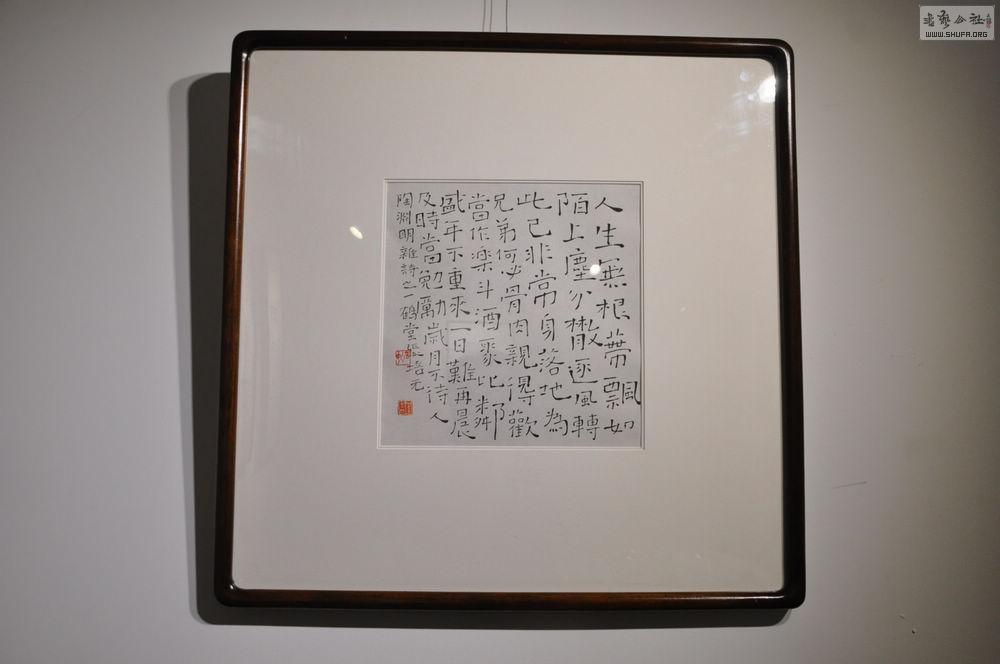 人生無根蒂飄如
陌上塵分散逐風轉
此已非常身落地為
兄弟何必骨肉親得歡
當作楽斗酒聚比鄰
盛年不重來一日難再晨
及時當勉勵歲月不待人
陶淵明雜詩之一鶴堂張培元
書藝公社
WWW.SHUFA.ORG